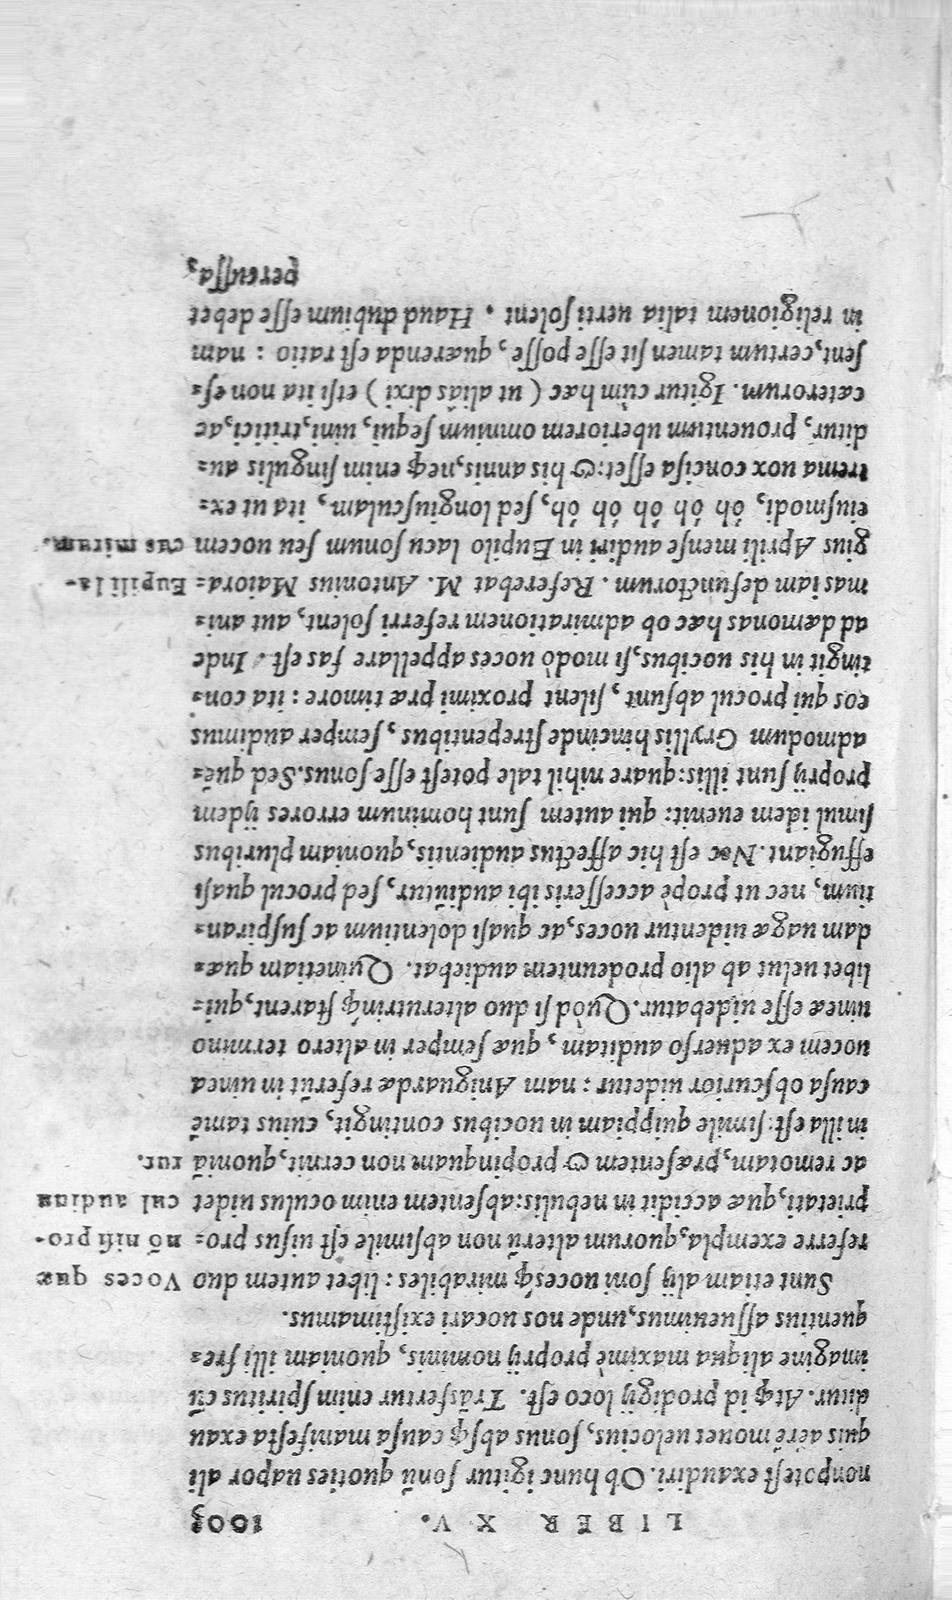 LIBER XV. 1003
non potest exaudiri. Ob hunc igitur sonũ quoties uapor ali
quis aërẽ mouet uelocius, sonus absq; causa manifesta exau
ditur. Atq; id prodigij loco est. Trãsfertur enim spiritus cũ
imagine aliqua maximè proprij nominis, quoniam illi fre=
quentius assueuimus, unde nos uocari existimamus.
Sunt etiam alij soni uocesq; mirabiles: libet autem duo
Voces quæ
referre exempla, quorum alterũ non absimile est uisus pro=
nõ nisi pro-
prietati, quæ accidit in nebulis: absentem enim oculus uidet
cul audiun
ac remotam, præsentem & propinquam non cernit, quoniã
tur.
in illa est: simile quippiam in uocibus contingit, cuius tamẽ
causa obscurior uidetur: nam Aniguardæ referũt in uinea
uocem ex aduerso auditam, quæ semper in altero termino
uineæ esse uidebatur. Quòd si duo alterutrinq; starent, qui=
libet uelut ab alio prodeuntem audiebat. Quinetiam quæ=
dam uagæ uidentur uoces, ac quasi dolentium ac suspiran=
tium, nec ut propè accesseris ibi audiũtur, sed procul quasi
effugiant. Nec est hic affectus audientis, quoniam pluribus
simul idem euenit: qui autem sunt hominum errores ijdem
proprij sunt illis: quare nihil tale potest esse sonus. Sed quẽ=
admodum Gryllis hincinde strepentibus, semper audimus
eos qui procul absunt, silent proximi præ timore: ita con=
tingit in his uocibus, si modò uoces appellare fas est. Inde
ad dæmonas hæc ob admirationem referri solent, aut ani=
mas iam defunctorum. Referebat M. Antonius Maiora=
Eupili la-
gius Aprili mense audiri in Eupilo lacu sonum seu uocem
cus mirum.
eiusmodi, ôh ôh ôh ôh ôh, sed longiusculam, ita ut ex=
trema uox concisa esset: & his annis, neq; enim singulis au=
ditur, prouentum uberiorem omnium sequi, uini, tritici, ac
cæterorum. Igitur cùm hæc (ut aliàs dixi) etsi ita non es=
sent, certum tamen sit esse posse, quærenda est ratio: nam
in religionem talia uerti solent. Haud dubium esse debet
percussa,